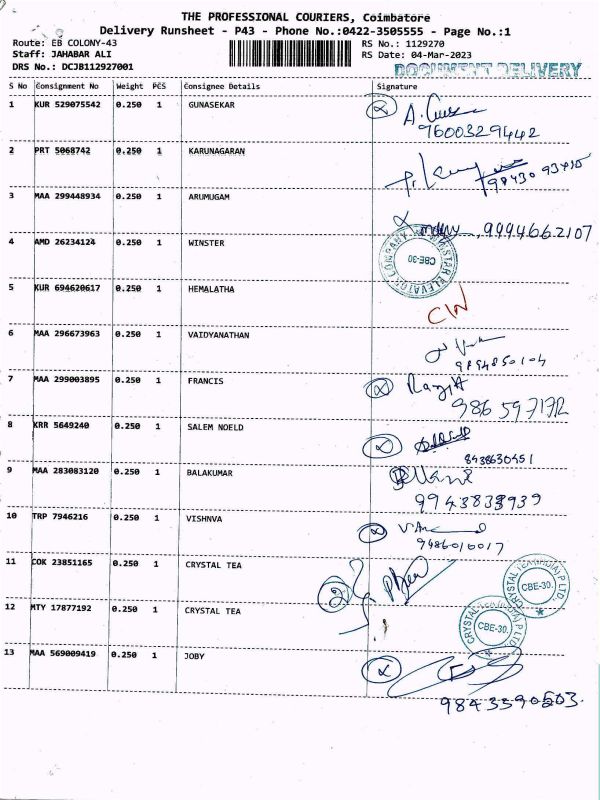 THE PROFESSIONAL COURIERS, Coimbatore
Delivery Runsheet - P43 - Phone No.:0422-3505555 - Page No.:1
Route: EB COLONY-43
RS No.: 1129270
Staff: JAHABAR ALI
RS Date: 04-Mar-2023
DRS No.: DCJB112927001
DOCUMENT DELIVERY
S No Consignment No Weight PCS Consignee Details Signature
1 KUR 529075542 0.250 1 GUNASEKAR
9600329442
2 PRT 5068742 0.250 1 KARUNAGARAN
3 MAA 299448934 0.250 1 ARUMUGAM
9994662107
4 AMD 26234124 0.250 1 WINSTER
CBE-30
5 KUR 694620617 0.250 1 HEMALATHA
6 MAA 296673963 0.250 1 VAIDYANATHAN
9894850104
7 MAA 299003895 0.250 1 FRANCIS
8 KRR 5649240 0.250 1 SALEM NOELD
8438630451
9 MAA 283083120 0.250 1 BALAKUMAR
9943833939
10 TRP 7946216 0.250 1 VISHNVA
9486010017
11 COK 23851165 0.250 1 CRYSTAL TEA
CBE-30.
12 MTY 17877192 0.250 1 CRYSTAL TEA
CRYSTAL TEA (INDIA) P LTD.
CBE-30.
13 MAA 569009419 0.250 1 JOBY
9843390503.